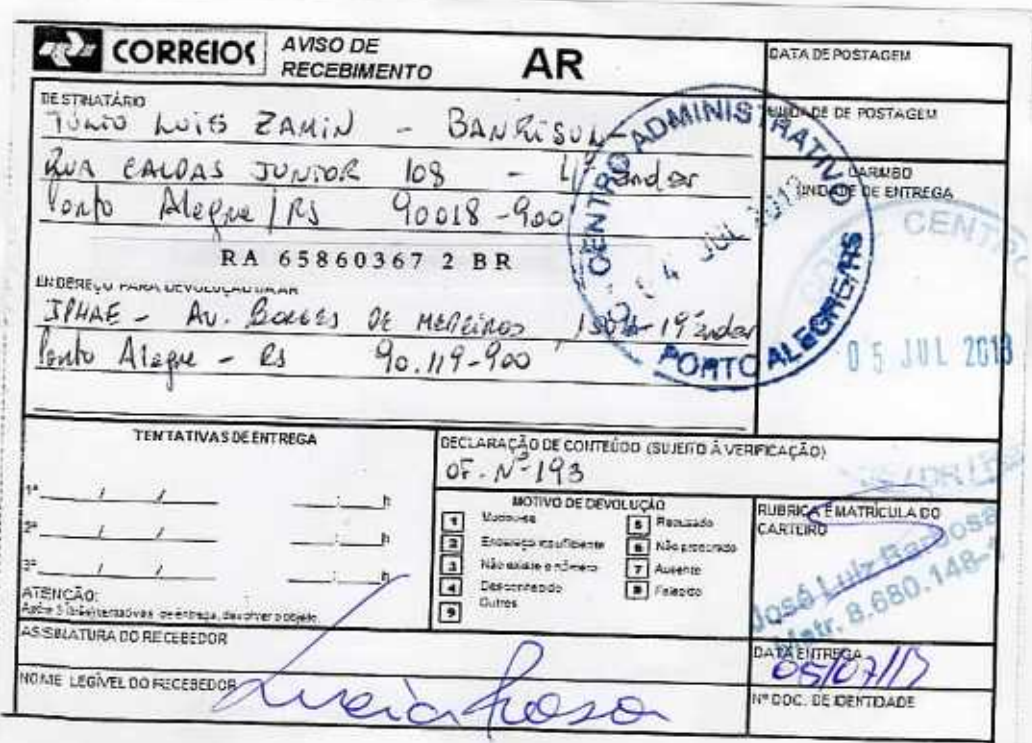 CORREIOS
AVISO DE
RECEBIMENTO
AR
DATA DE POSTAGEM
UNIDADE DE POSTAGEM
CARIMBO
UNIDADE DE ENTREGA
DESTINATÁRIO
TÚLIO LUIS ZAMIN - BANRISUL
RUA CALDAS JUNIOR 108 - 4º andar
Porto Alegre / RS 90018-900
RA 65860367 2 BR
ENDEREÇO PARA DEVOLUÇÃO DO AR
IPHAE - Av. BORGES DE MEDEIROS, 1501 - 19º andar
Porto Alegre - RS 90.119-900
CENTRO ADMINISTRATIVO
04 JUL 2013
PORTO ALEGRE/RS
CENTRO
05 JUL 2013
TENTATIVAS DE ENTREGA
1ª / / : h
2ª / / : h
3ª / / : h
ATENÇÃO:
Após 3 (três) tentativas de entrega, devolver o objeto.
DECLARAÇÃO DE CONTEÚDO (SUJEITO À VERIFICAÇÃO)
OF. Nº 193
MOTIVO DE DEVOLUÇÃO
1 Mudou-se
2 Endereço insuficiente
3 Não existe o número
4 Desconhecido
9 Outros
5 Recusado
6 Não procurado
7 Ausente
8 Falecido
RUBRICA E MATRÍCULA DO
CARTEIRO
José Luiz Barbosa
Matr. 8.680.148-
ASSINATURA DO RECEBEDOR
DATA ENTREGA
05/07/13
NOME LEGÍVEL DO RECEBEDOR
Nº DOC. DE IDENTIDADE